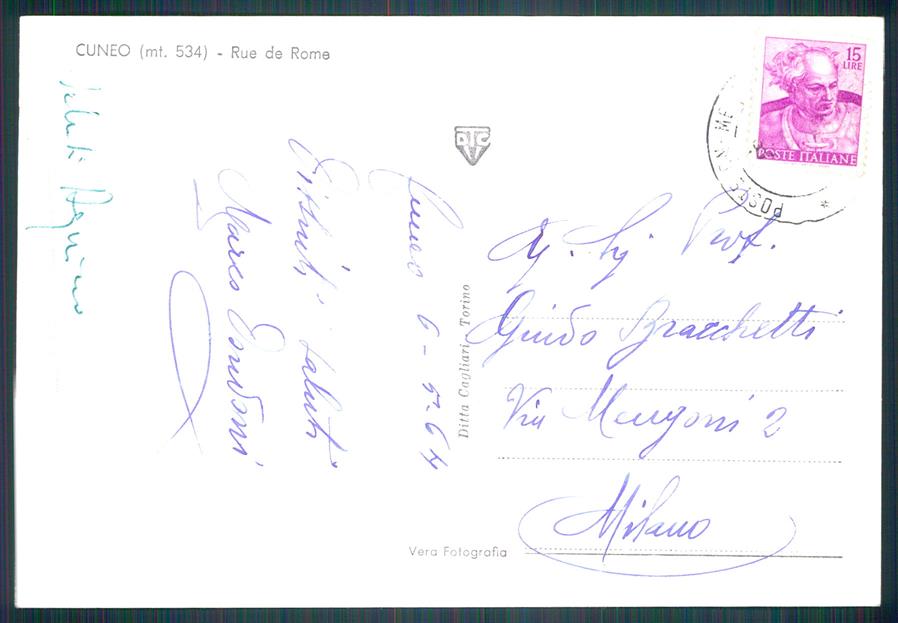 CUNEO (mt. 534) - Rue de Rome
15
LIRE
POSTE ITALIANE
DTC
Cuneo 6-5-64
Distinti saluti
Marco
Saluti
Ditta Cagliari, Torino
Prof.
Guido Bracchetti
Via Mengoni 2
Milano
Vera Fotografia